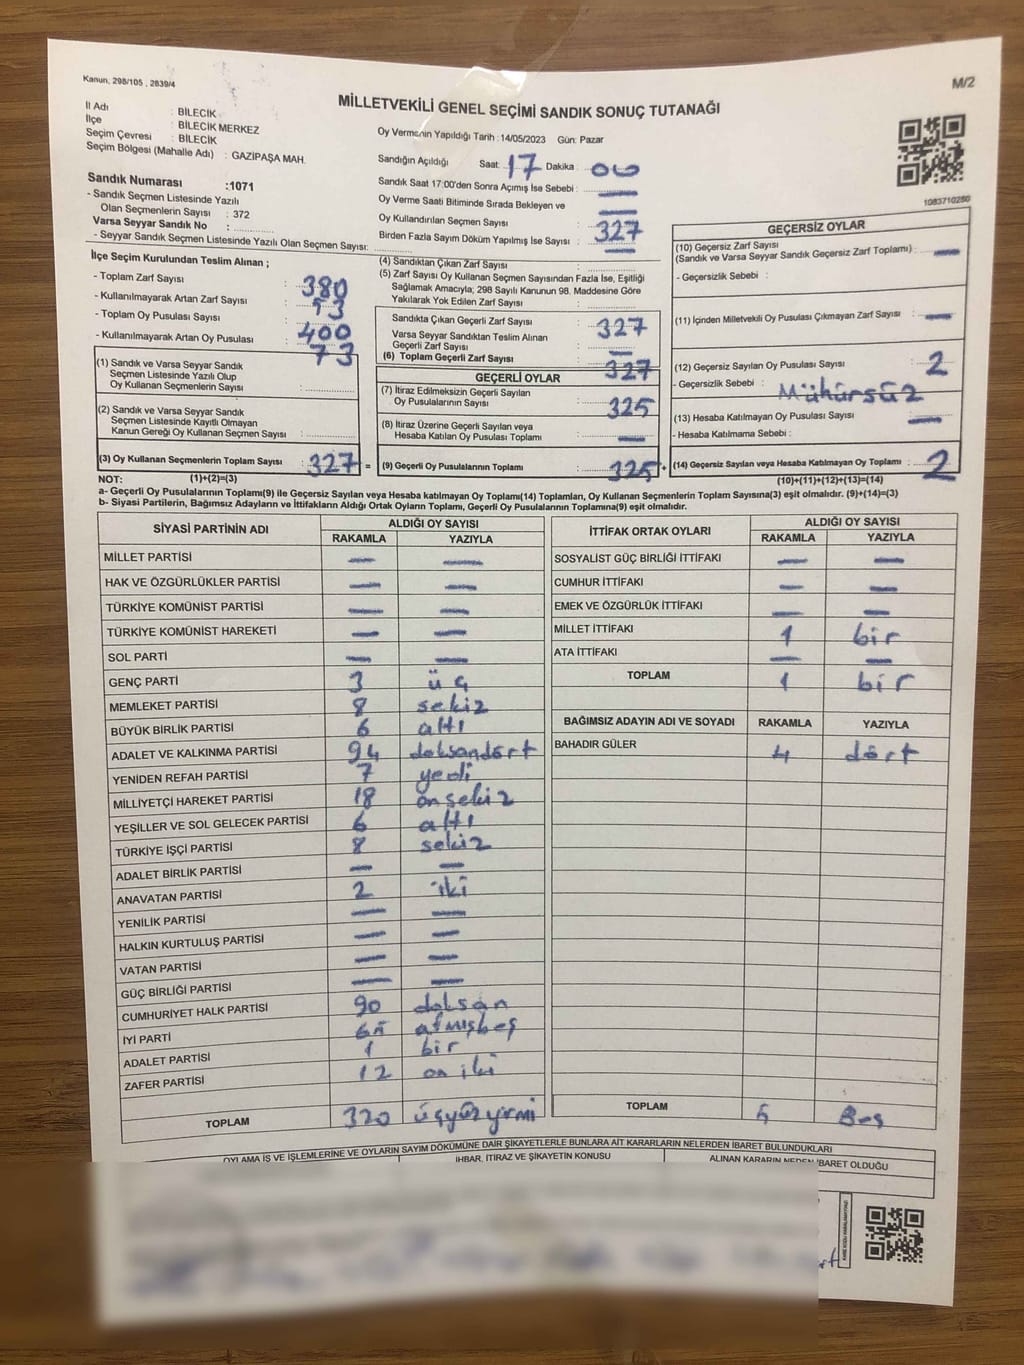 Kanun, 298/105 , 2839/4
M/2
MİLLETVEKİLİ GENEL SEÇİMİ SANDIK SONUÇ TUTANAĞI
İl Adı : BİLECİK
İlçe : BİLECİK MERKEZ
Seçim Çevresi : BİLECİK
Seçim Bölgesi (Mahalle Adı) : GAZİPAŞA MAH.
Sandık Numarası :1071
- Sandık Seçmen Listesinde Yazılı
Olan Seçmenlerin Sayısı : 372
Varsa Seyyar Sandık No :
- Seyyar Sandık Seçmen Listesinde Yazılı Olan Seçmen Sayısı:
Oy Vermenin Yapıldığı Tarih :14/05/2023 Gün: Pazar
Sandığın Açıldığı Saat: 17 Dakika : 00
Sandık Saat 17:00'den Sonra Açımış İse Sebebi : —
Oy Verme Saati Bitiminde Sırada Bekleyen ve
Oy Kullandırılan Seçmen Sayısı : —
Birden Fazla Sayım Döküm Yapılmış İse Sayısı :
327
1083710250
İlçe Seçim Kurulundan Teslim Alınan ;
- Toplam Zarf Sayısı : 380
- Kullanılmayarak Artan Zarf Sayısı : 53
- Toplam Oy Pusulası Sayısı : 400
- Kullanılmayarak Artan Oy Pusulası : 73
(1) Sandık ve Varsa Seyyar Sandık
Seçmen Listesinde Yazılı Olup
Oy Kullanan Seçmenlerin Sayısı :
(2) Sandık ve Varsa Seyyar Sandık
Seçmen Listesinde Kayıtlı Olmayan
Kanun Gereği Oy Kullanan Seçmen Sayısı :
(3) Oy Kullanan Seçmenlerin Toplam Sayısı : 327 =
(4) Sandıktan Çıkan Zarf Sayısı : —
(5) Zarf Sayısı Oy Kullanan Seçmen Sayısından Fazla İse, Eşitliği
Sağlamak Amacıyla; 298 Sayılı Kanunun 98. Maddesine Göre
Yakılarak Yok Edilen Zarf Sayısı :
Sandıkta Çıkan Geçerli Zarf Sayısı : 327
Varsa Seyyar Sandıktan Teslim Alınan
Geçerli Zarf Sayısı : —
(6) Toplam Geçerli Zarf Sayısı : 327
GEÇERLİ OYLAR
(7) İtiraz Edilmeksizin Geçerli Sayılan
Oy Pusulalarının Sayısı : 325
(8) İtiraz Üzerine Geçerli Sayılan veya
Hesaba Katılan Oy Pusulası Toplamı : —
(9) Geçerli Oy Pusulalarının Toplamı : 325 +
GEÇERSİZ OYLAR
(10) Geçersiz Zarf Sayısı
(Sandık ve Varsa Seyyar Sandık Geçersiz Zarf Toplamı) : —
- Geçersizlik Sebebi :
(11) İçinden Milletvekili Oy Pusulası Çıkmayan Zarf Sayısı : —
(12) Geçersiz Sayılan Oy Pusulası Sayısı : 2
- Geçersizlik Sebebi : Mühürsüz
(13) Hesaba Katılmayan Oy Pusulası Sayısı : —
- Hesaba Katılmama Sebebi :
(14) Geçersiz Sayılan veya Hesaba Katılmayan Oy Toplamı : 2
NOT: (1)+(2)=(3) (10)+(11)+(12)+(13)=(14)
a- Geçerli Oy Pusulalarının Toplamı(9) ile Geçersiz Sayılan veya Hesaba katılmayan Oy Toplamı(14) Toplamları, Oy Kullanan Seçmenlerin Toplam Sayısına(3) eşit olmalıdır. (9)+(14)=(3)
b- Siyasi Partilerin, Bağımsız Adayların ve İttifakların Aldığı Ortak Oyların Toplamı, Geçerli Oy Pusulalarının Toplamına(9) eşit olmalıdır.
SİYASİ PARTİNİN ADI ALDIĞI OY SAYISI
RAKAMLA YAZIYLA
MİLLET PARTİSİ — —
HAK VE ÖZGÜRLÜKLER PARTİSİ — —
TÜRKİYE KOMÜNİST PARTİSİ — —
TÜRKİYE KOMÜNİST HAREKETİ — —
SOL PARTİ — —
GENÇ PARTİ 3 üç
MEMLEKET PARTİSİ 8 sekiz
BÜYÜK BİRLİK PARTİSİ 6 altı
ADALET VE KALKINMA PARTİSİ 94 doksandört
YENİDEN REFAH PARTİSİ 7 yedi
MİLLİYETÇİ HAREKET PARTİSİ 18 onsekiz
YEŞİLLER VE SOL GELECEK PARTİSİ 6 altı
TÜRKİYE İŞÇİ PARTİSİ 8 sekiz
ADALET BİRLİK PARTİSİ — —
ANAVATAN PARTİSİ 2 iki
YENİLİK PARTİSİ — —
HALKIN KURTULUŞ PARTİSİ — —
VATAN PARTİSİ — —
GÜÇ BİRLİĞİ PARTİSİ — —
CUMHURİYET HALK PARTİSİ 90 doksan
İYİ PARTİ 65 atmışbeş
ADALET PARTİSİ 1 bir
ZAFER PARTİSİ 12 on iki
TOPLAM 320 üçyüzyirmi
İTTİFAK ORTAK OYLARI ALDIĞI OY SAYISI
RAKAMLA YAZIYLA
SOSYALİST GÜÇ BİRLİĞİ İTTİFAKI — —
CUMHUR İTTİFAKI — —
EMEK VE ÖZGÜRLÜK İTTİFAKI — —
MİLLET İTTİFAKI 1 bir
ATA İTTİFAKI — —
TOPLAM 1 bir
BAĞIMSIZ ADAYIN ADI VE SOYADI RAKAMLA YAZIYLA
BAHADIR GÜLER 4 dört
TOPLAM 5 Beş
OYLAMA İŞ VE İŞLEMLERİNE VE OYLARIN SAYIM DÖKÜMÜNE DAİR ŞİKAYETLERLE BUNLARA AİT KARARLARIN NELERDEN İBARET BULUNDUKLARI
İHBAR, İTİRAZ VE ŞİKAYETİN KONUSU
ALINAN KARARIN NEDEN İBARET OLDUĞU